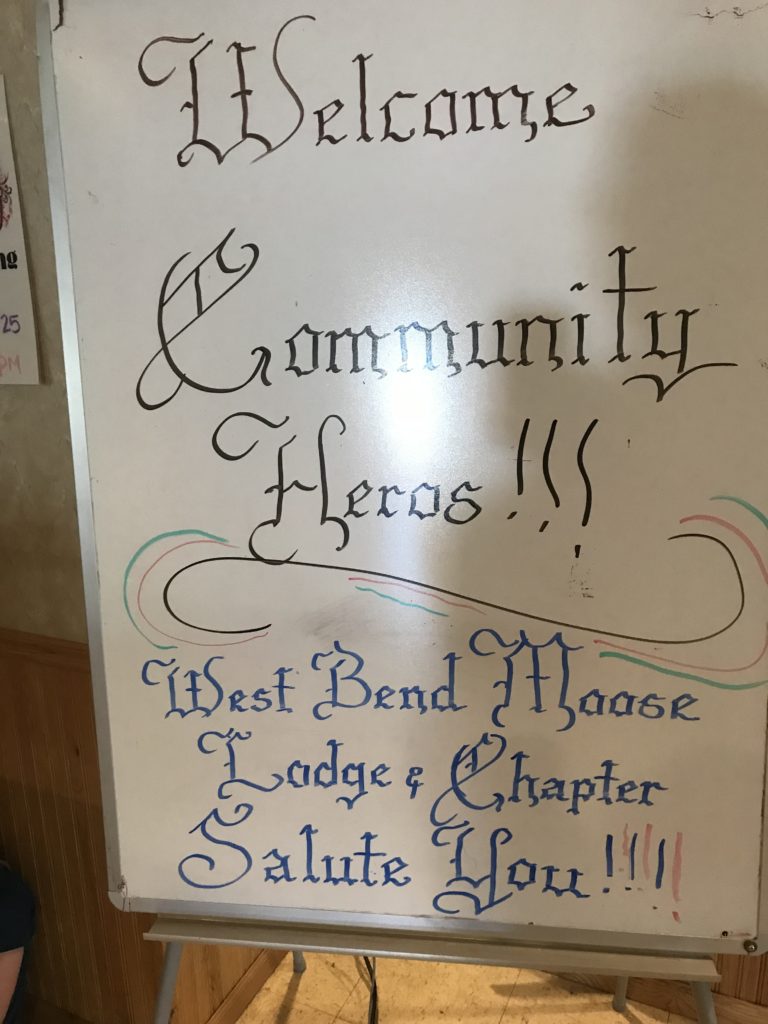 Welcome
Community
Heros!!!
West Bend Moose
Lodge & Chapter
Salute You!!!!
ng
25
PM